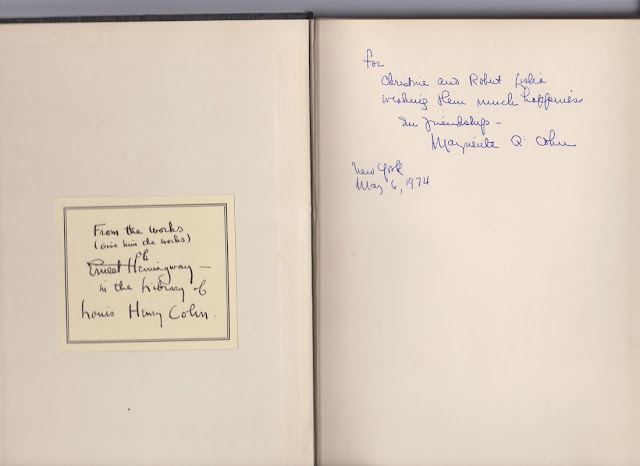 From the works
(Give him the works)
of
Ernest Hemingway —
in the Library of
Louis Henry Cohn.
For
Christine and Robert
wishing them much happiness
In friendship —
Marguerite Cohn
New York
May 6, 1974